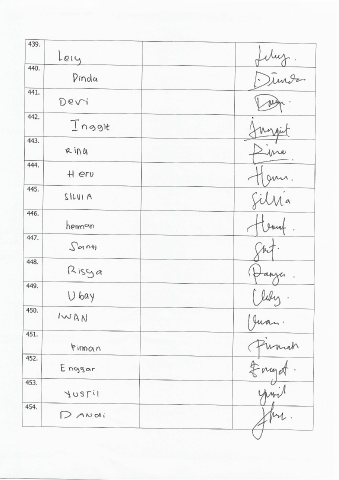 439. Lely Lely.
440. Dinda Dinda
441. Devi
442. Inggit Inggit
443. Rina Rina
444. Heru
445. SILVIA Silvia
446. herman
447. Santi
448. Rissya
449. Ubay Ubay.
450. IWAN Iwan.
451. Firman Firman
452. Enggar
453. YUSRIL
454. DANDI